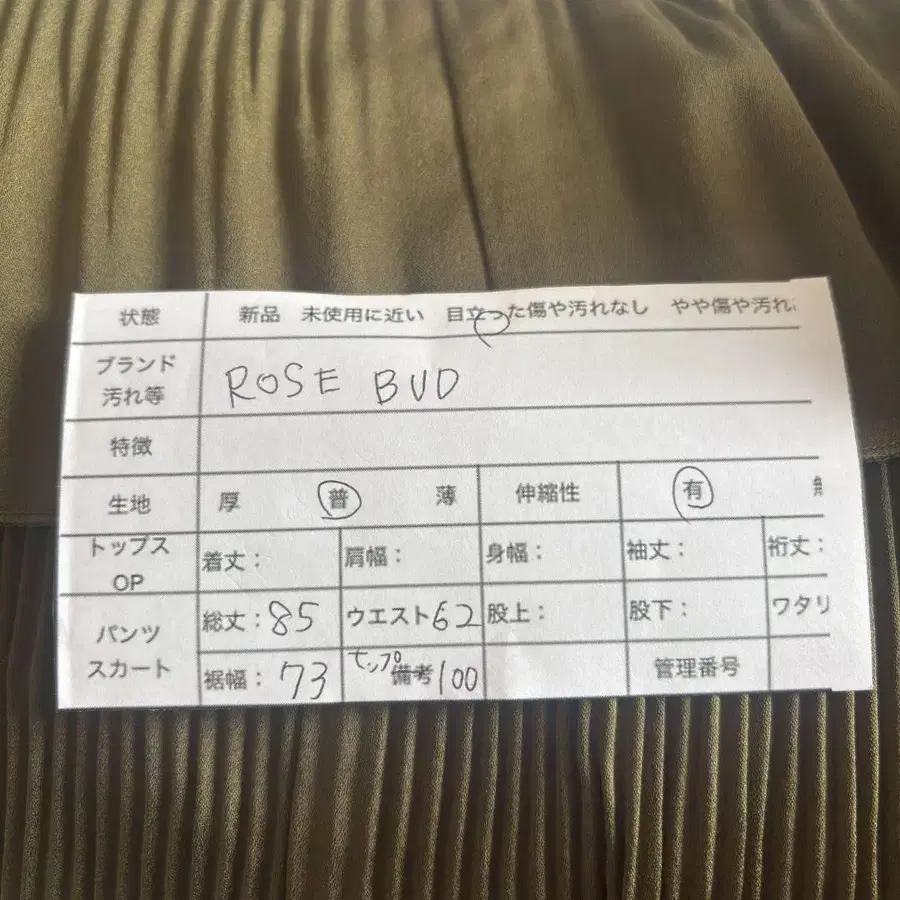 状態 新品 未使用に近い 目立った傷や汚れなし やや傷や汚れ
ブランド
汚れ等 ROSE BUD
特徴
生地 厚 普 薄 伸縮性 有
トップス
OP 着丈： 肩幅： 身幅： 袖丈： 裄丈：
パンツ
スカート 総丈：85 ウエスト62 股上： 股下： ワタリ
裾幅：73 ヒップ 備考100 管理番号